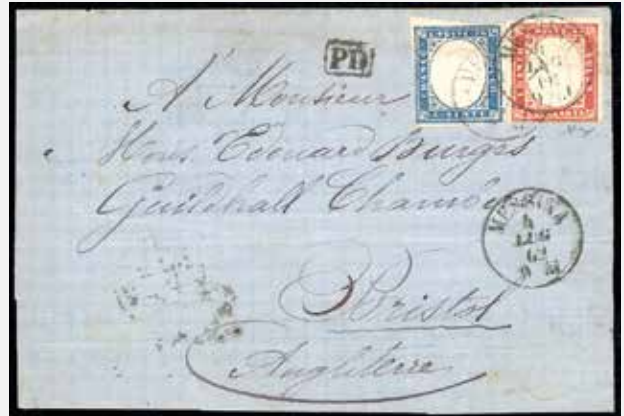 PD
A' Monsieur
Edouard Burges
Guildhall Chamb
MESSINA
4
LUG
62
9 M
Bristol
Angleterre